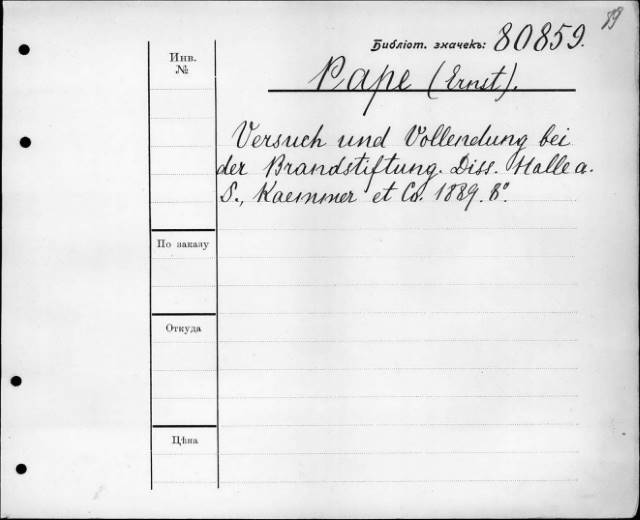 89
Библіот. значекъ: 80859.
Инв. №
Pape (Ernst).
Versuch und Vollendung bei
der Brandstiftung. Diss. Halle a.
S., Kaemmer et Co. 1889. 8º.
По заказу
Откуда
Цѣна